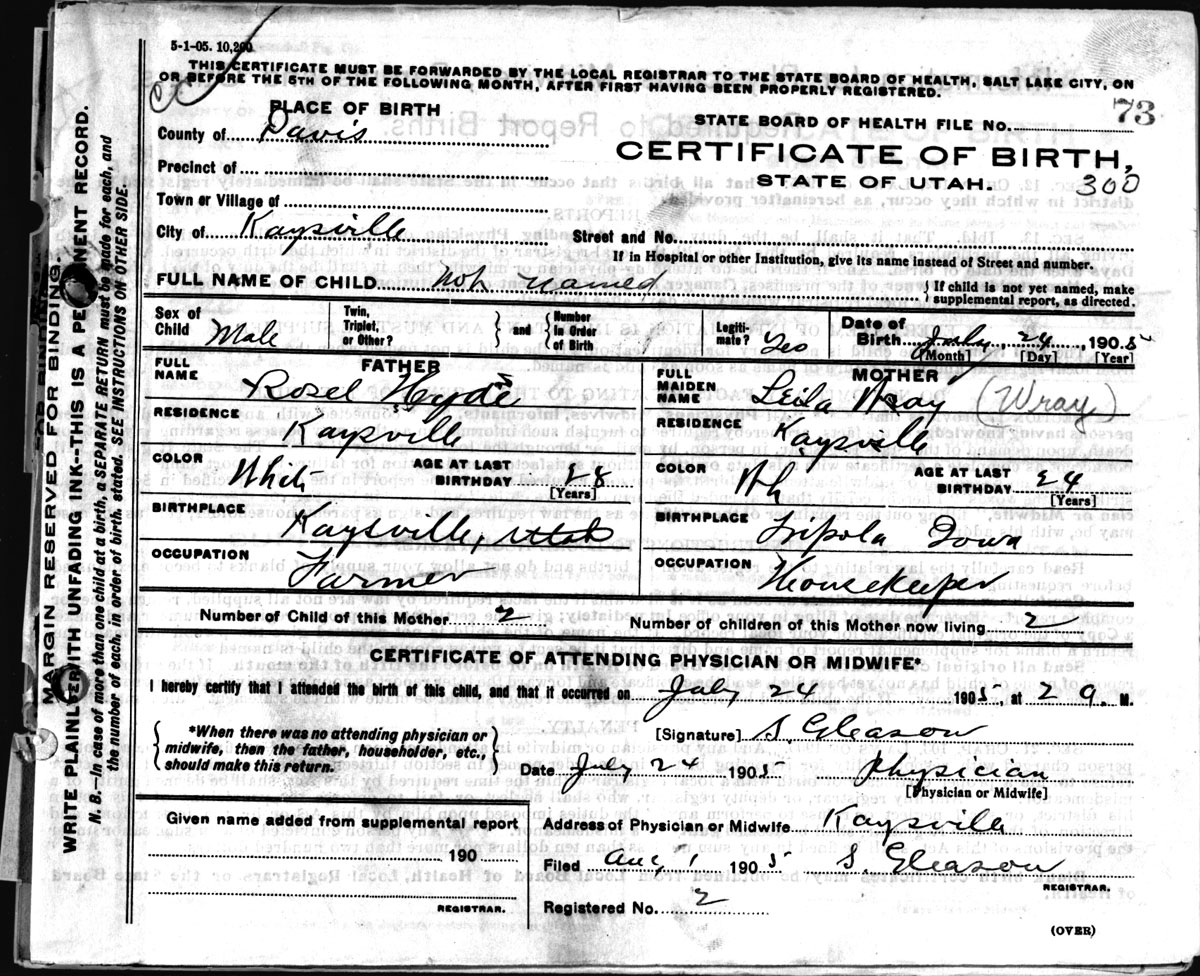 5-1-05. 10,200
THIS CERTIFICATE MUST BE FORWARDED BY THE LOCAL REGISTRAR TO THE STATE BOARD OF HEALTH, SALT LAKE CITY, ON
OR BEFORE THE 5TH OF THE FOLLOWING MONTH, AFTER FIRST HAVING BEEN PROPERLY REGISTERED.
PLACE OF BIRTH
County of Davis
Precinct of
Town or Village of
City of Kaysville
STATE BOARD OF HEALTH FILE NO. 73
CERTIFICATE OF BIRTH,
STATE OF UTAH. 300
Street and No.
If in Hospital or other Institution, give its name instead of Street and number.
FULL NAME OF CHILD Not named
If child is not yet named, make
supplemental report, as directed.
Sex of Child Male
Twin, Triplet, or Other?
and
Number in Order of Birth
Legiti-mate? Yes
Date of Birth July 24, 1905
[Month] [Day] [Year]
FATHER
FULL NAME Rosel Hyde
RESIDENCE Kaysville
COLOR White
AGE AT LAST BIRTHDAY 28
[Years]
BIRTHPLACE Kaysville, Utah
OCCUPATION Farmer
MOTHER
FULL MAIDEN NAME Leila Wray (Wray)
RESIDENCE Kaysville
COLOR Wh
AGE AT LAST BIRTHDAY 24
[Years]
BIRTHPLACE Tripola Iowa
OCCUPATION Housekeeper
Number of Child of this Mother 2
Number of children of this Mother now living 2
CERTIFICATE OF ATTENDING PHYSICIAN OR MIDWIFE*
I hereby certify that I attended the birth of this child, and that it occurred on July 24 1905, at 2 a. M.
*When there was no attending physician or
midwife, then the father, householder, etc.,
should make this return.
[Signature] S. Gleason
Date July 24 1905 Physician
[Physician or Midwife]
Given name added from supplemental report
190
REGISTRAR.
Address of Physician or Midwife Kaysville
Filed Aug 1 1905 S. Gleason
REGISTRAR.
Registered No. 2
(OVER)
MARGIN RESERVED FOR BINDING.
WRITE PLAINLY WITH UNFADING INK--THIS IS A PERMANENT RECORD.
N. B.--In case of more than one child at a birth, a SEPARATE RETURN must be made for each, and
the number of each, in order of birth, stated. SEE INSTRUCTIONS ON OTHER SIDE.